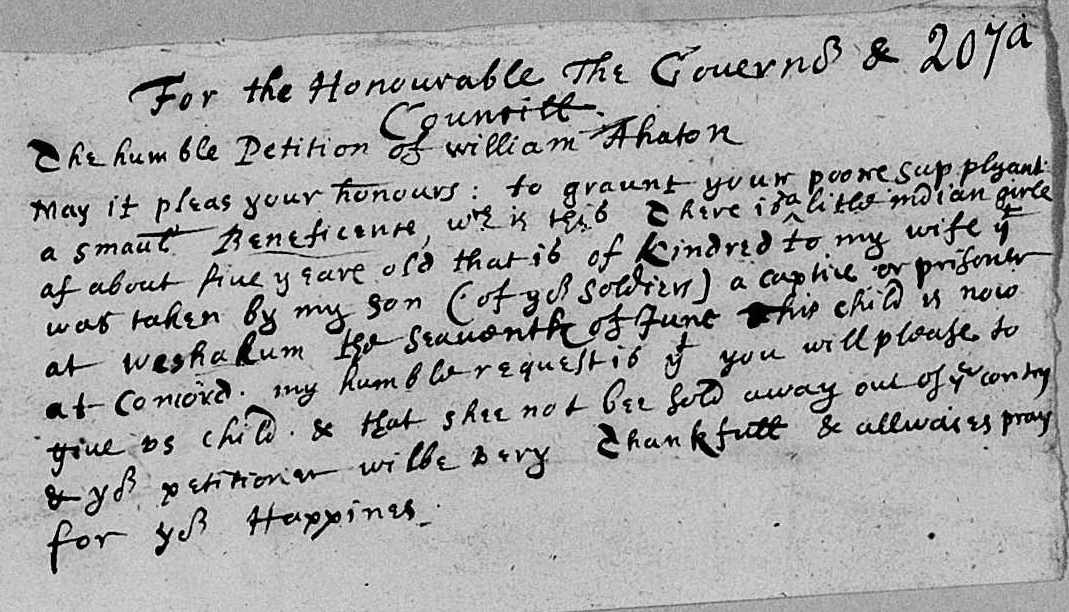 For the Honourable The Governr & 207a
Councill.
The humble Petition of william Ahaton
May it pleas your honours: to graunt your poore supplyant
a smaull Beneficence, wch is this There is a little indian girle
of about five yeare old that is of kindred to my wife yt
was taken by my son (of yr soldiers) a captive or prisoner
at weshakum the seauenth of June This child is now
at Concord. my humble request is yt you will please to
giue vs child. & that shee not bee sold away out of ye contry
& yr petitioner wilbe very Thankfull & allwaies pray
for yr Happines.